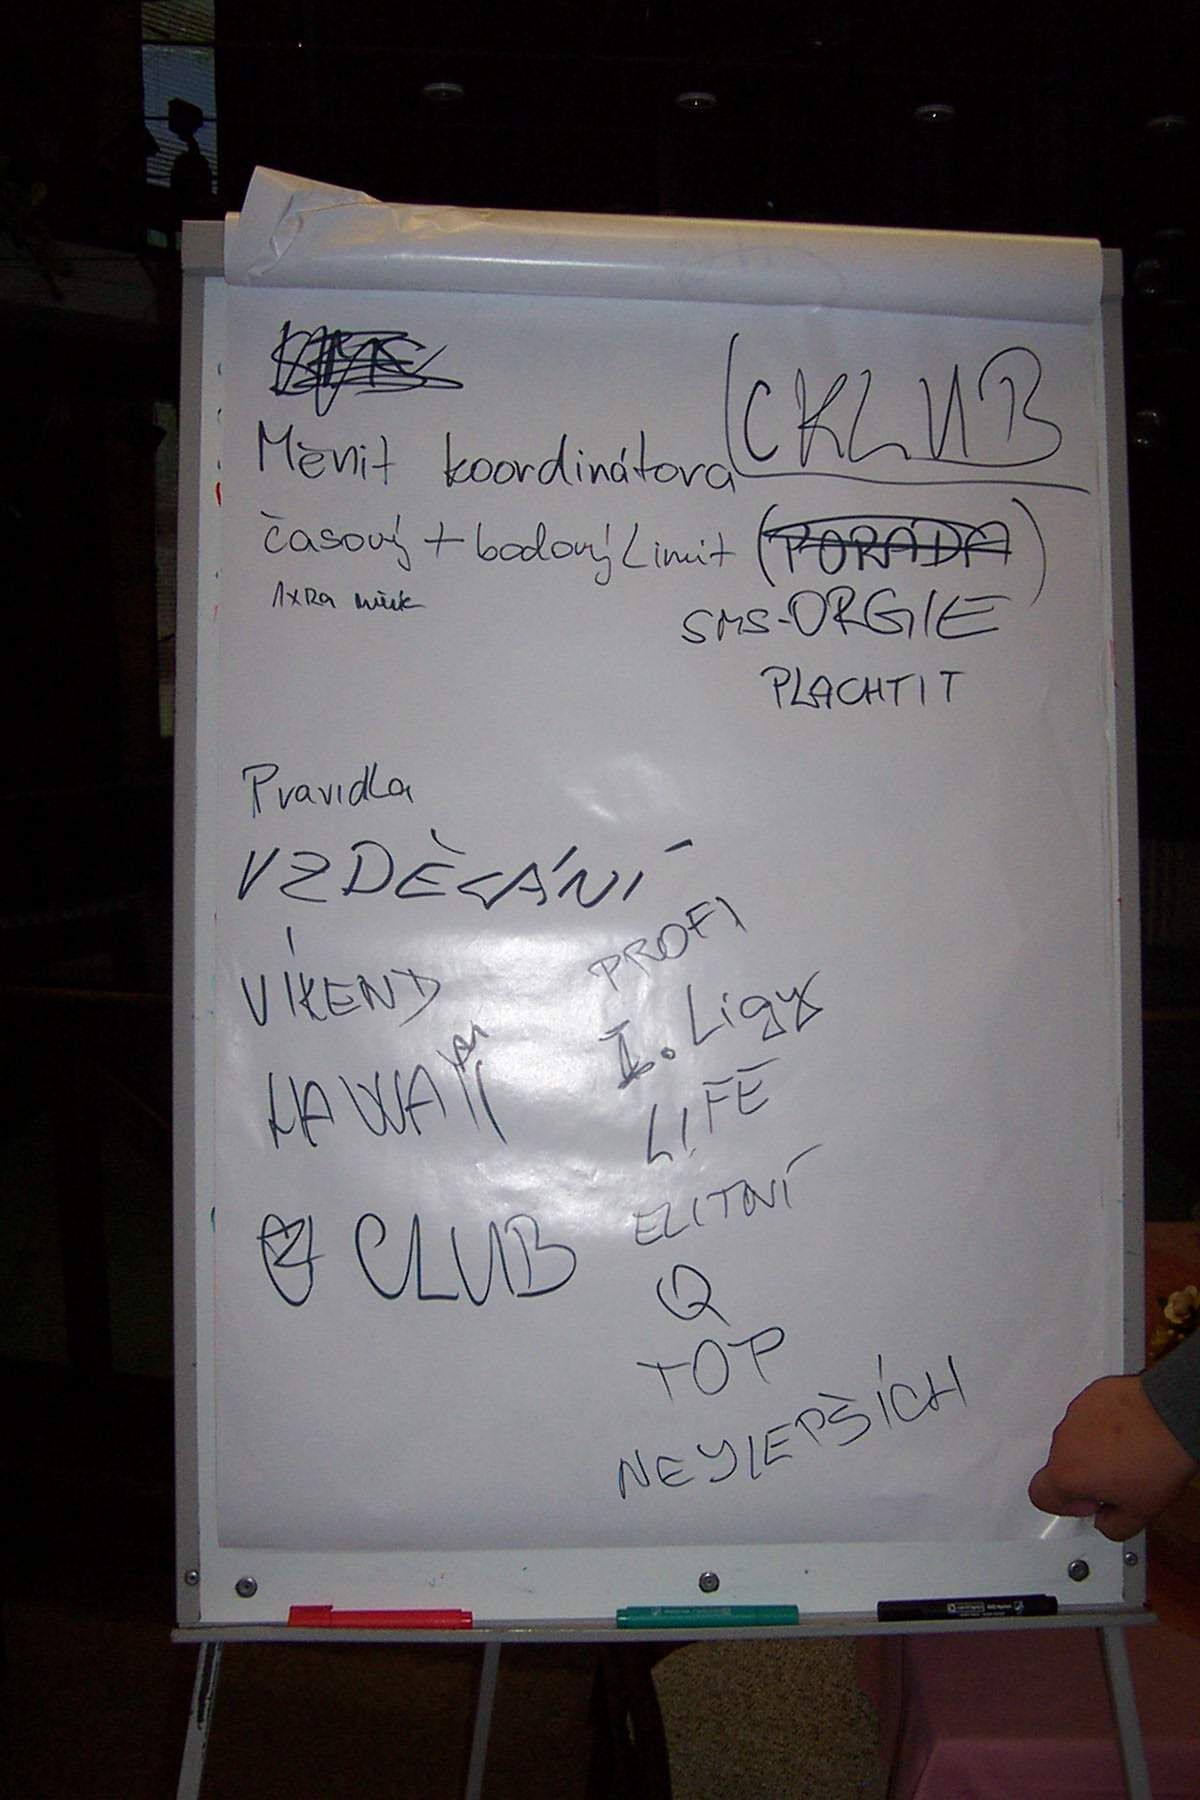 CKLUB
Měnit koordinátora
časový + bodový limit (PORADA)
1x za
SMS-ORGIE
PLACHTIT
Pravidla
VZDĚLÁNÍ
VÍKEND
HAWAII
CLUB
PROFI
I. Ligy
LIFE
ELITNÍ
Q
TOP
NEJLEPŠÍCH